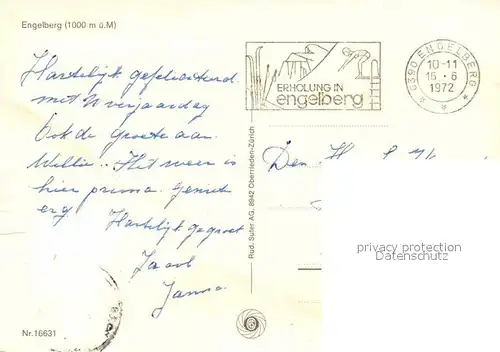 Engelberg (1000 m ü.M)
Hartelijk gefeliciteerd
met U verjaardag
Ook de groete aan
Willie.. Het weer is
hier prima. Geniet
erg
Hartelijk gegroet
Jacob
Janna
Nr.16631
Rud. Suter AG, 8942 Oberrieden-Zürich
ERHOLUNG IN
engelberg
6390 ENGELBERG
10-11
15.-6
1972
Den H
privacy protection
Datenschutz